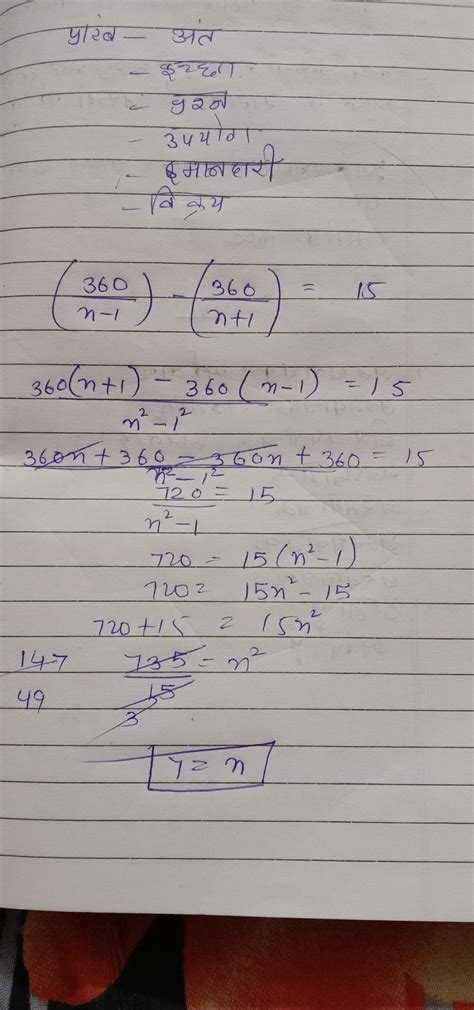 प्रारंब – अंत
– इच्छा
– प्रश्न
– उपयोग
– इमानदारी
– विक्रय
(360/n-1) - (360/n+1) = 15
360(n+1) - 360(n-1) / n²-1² = 15
360n + 360 - 360n + 360 / n²-1² = 15
720 / n²-1 = 15
720 = 15(n²-1)
720 = 15n² - 15
720+15 = 15n²
147 735/15 = n²
49 3
7 = n